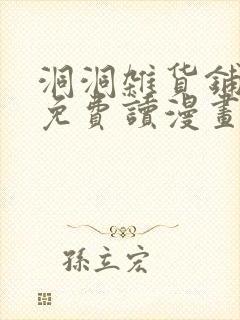 洞洞雜貨鋪
免費讀漫畫
孫立宏